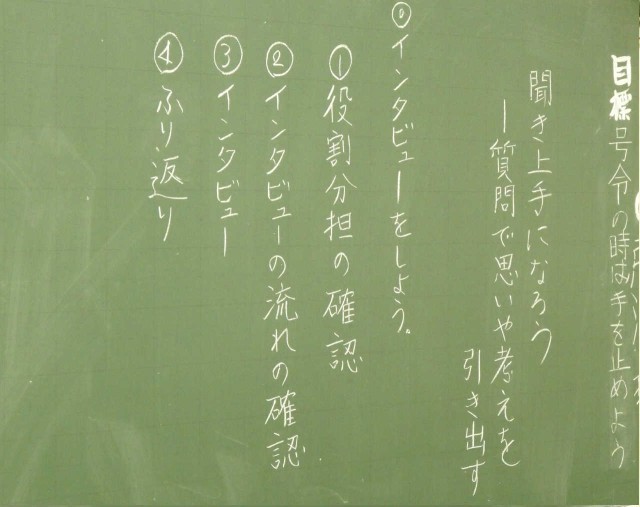 目標 号令の時は手を止めよう
聞き上手になろう
―質問で思いや考えを
引き出す
◎インタビューをしよう。
①役割分担の確認
②インタビューの流れの確認
③インタビュー
④ふり返り